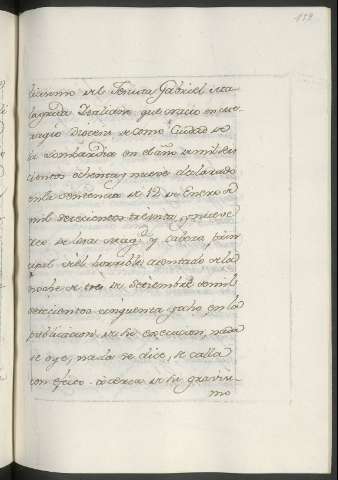 119
lissimo del Jesuita Gabriel Mala
lagrida Italiano que nacio en Me
nagio Diocesi de Como Ciudad de
la Lombardia en el año de mil seis
cientos ochenta y nueve declarado
en la sentencia de 12 de Enero de
mil setecientos cinquenta y nueve
reo de lesa Magd. y cabeza prin
cipal del horrible atentado de la
noche de tres de Setiembre de mil
setecientos cinquenta y ocho, en la
publicacion de su execucion, nada
se oye, nada se dice, se calla
con efecto acerca de su gravisi
mo